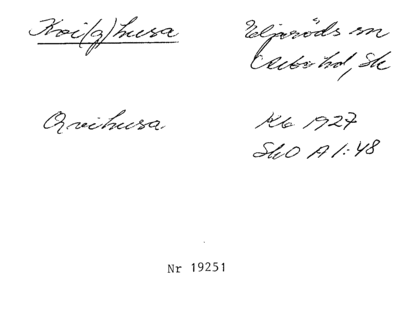 Kvi(g)husa
Eljaröds sn
Albo hd, Sk
Qvihusa
Kb 1927
SkO A 1:48
Nr 19251